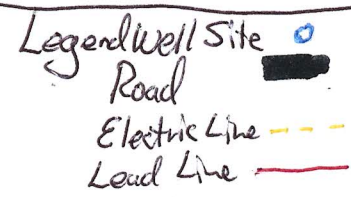 Legend Well Site
Road
Electric Line
Lead Line